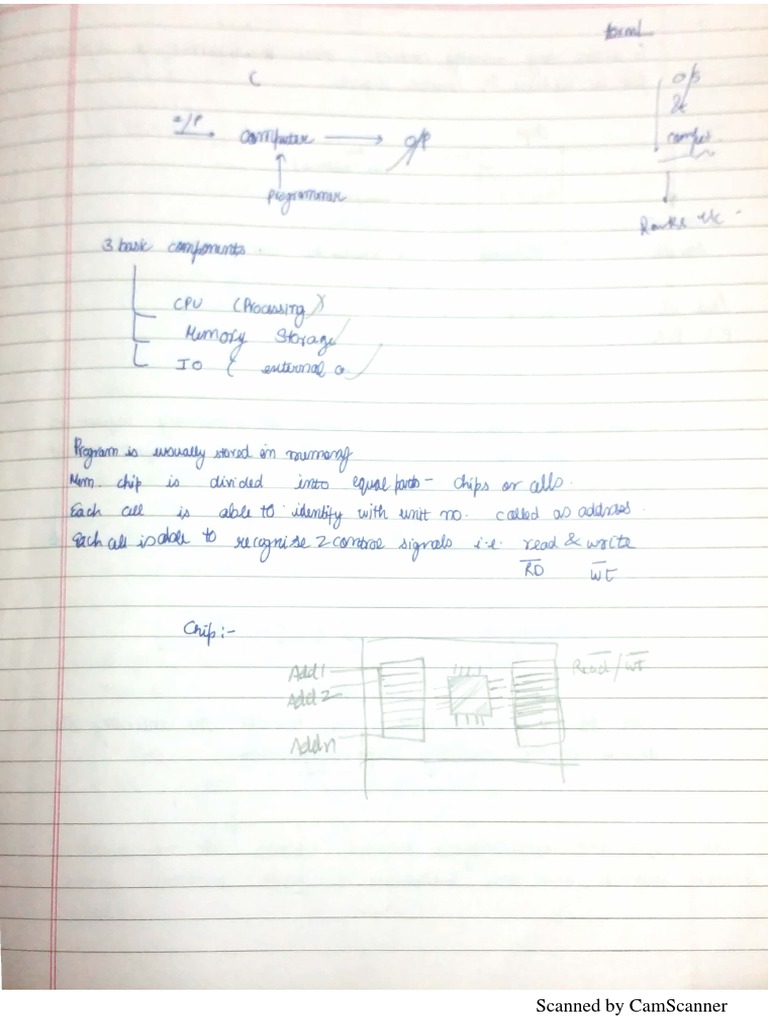 C
I/P computer O/P
programmer
O/S
&
3 basic components.
CPU (Processing)
Memory Storage
IO ( external
Program is usually stored in memory
Mem. chip is divided into equal parts - chips or cells.
Each cell is able to identify with unit no. called as address.
Each cell is able to recognise 2 control signals i.e. read & write
RD WT
Chip:-
Add1 Read/WT
Add2
Addn
Scanned by CamScanner